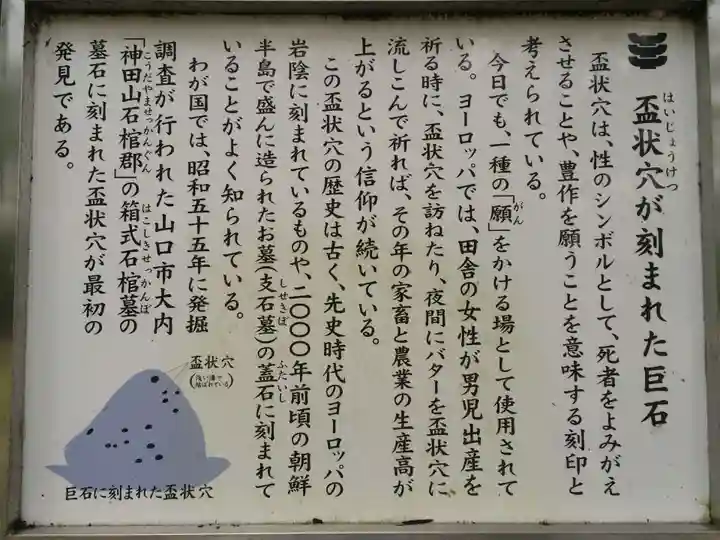 盃状穴が刻まれた巨石
はいじょうけつ
盃状穴は、性のシンボルとして、死者をよみがえ
させることや、豊作を願うことを意味する刻印と
考えられている。
今日でも、一種の「願」をかける場として使用されて
がん
いる。ヨーロッパでは、田舎の女性が男児出産を
祈る時に、盃状穴を訪ねたり、夜間にバターを盃状穴に
流しこんで祈れば、その年の家畜と農業の生産高が
上がるという信仰が続いている。
この盃状穴の歴史は古く、先史時代のヨーロッパの
岩陰に刻まれているものや、二〇〇〇年前頃の朝鮮
半島で盛んに造られたお墓(支石墓)の蓋石に刻まれて
しせきぼ
ふたいし
いることがよく知られている。
わが国では、昭和五十五年に発掘
調査が行われた山口市大内
「神田山石棺郡」の箱式石棺墓の
こうだやませっかんぐん
はこしきせっかんぼ
墓石に刻まれた盃状穴が最初の
発見である。
盃状穴
(浅い溝で結ばれている)
巨石に刻まれた盃状穴